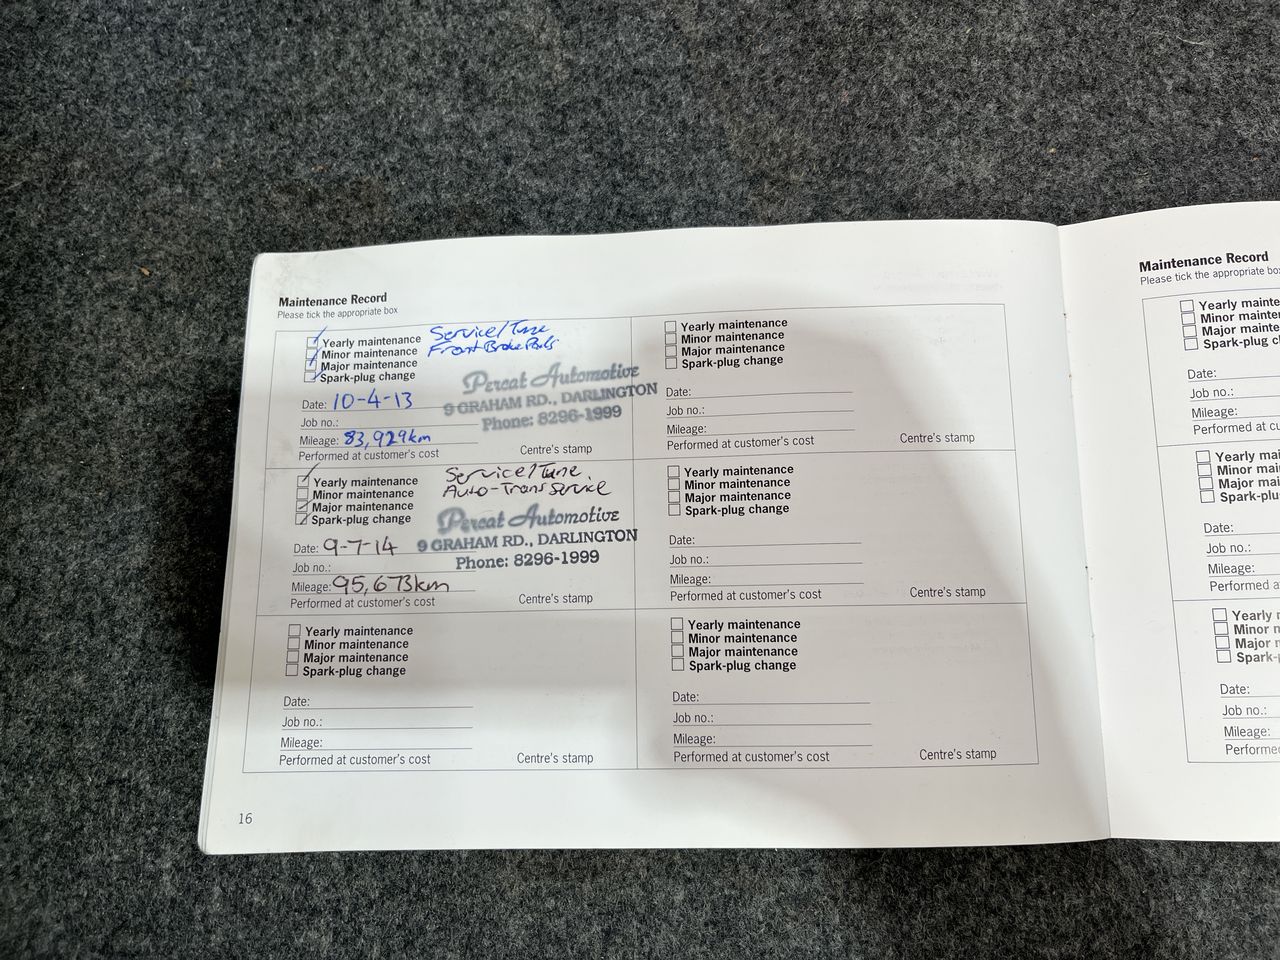 Maintenance Record
Please tick the appropriate box
Yearly maintenance
Minor maintenance
Major maintenance
Spark-plug change
Service/Tune
Front Brake Pads
Percat Automotive
9 GRAHAM RD., DARLINGTON
Phone: 8296-1999
Date: 10-4-13
Job no.:
Mileage: 83,929km
Performed at customer's cost
Centre's stamp
Yearly maintenance
Minor maintenance
Major maintenance
Spark-plug change
Service/Tune.
Auto-Trans Service
Percat Automotive
9 GRAHAM RD., DARLINGTON
Phone: 8296-1999
Date: 9-7-14
Job no.:
Mileage: 95,673km
Performed at customer's cost
Centre's stamp
Yearly maintenance
Minor maintenance
Major maintenance
Spark-plug change
Date:
Job no.:
Mileage:
Performed at customer's cost
Centre's stamp
Yearly maintenance
Minor maintenance
Major maintenance
Spark-plug change
Date:
Job no.:
Mileage:
Performed at customer's cost
Centre's stamp
Yearly maintenance
Minor maintenance
Major maintenance
Spark-plug change
Date:
Job no.:
Mileage:
Performed at customer's cost
Centre's stamp
Yearly maintenance
Minor maintenance
Major maintenance
Spark-plug change
Date:
Job no.:
Mileage:
Performed at customer's cost
Centre's stamp
16
Maintenance Record
Please tick the appropriate
Yearly
Minor
Major
Spark-plug
Date:
Job no.:
Mileage:
Performed at
Yearly
Minor
Major
Spark-plug
Date:
Job no.:
Mileage:
Performed at
Yearly
Minor
Major
Date:
Job no.:
Mileage: